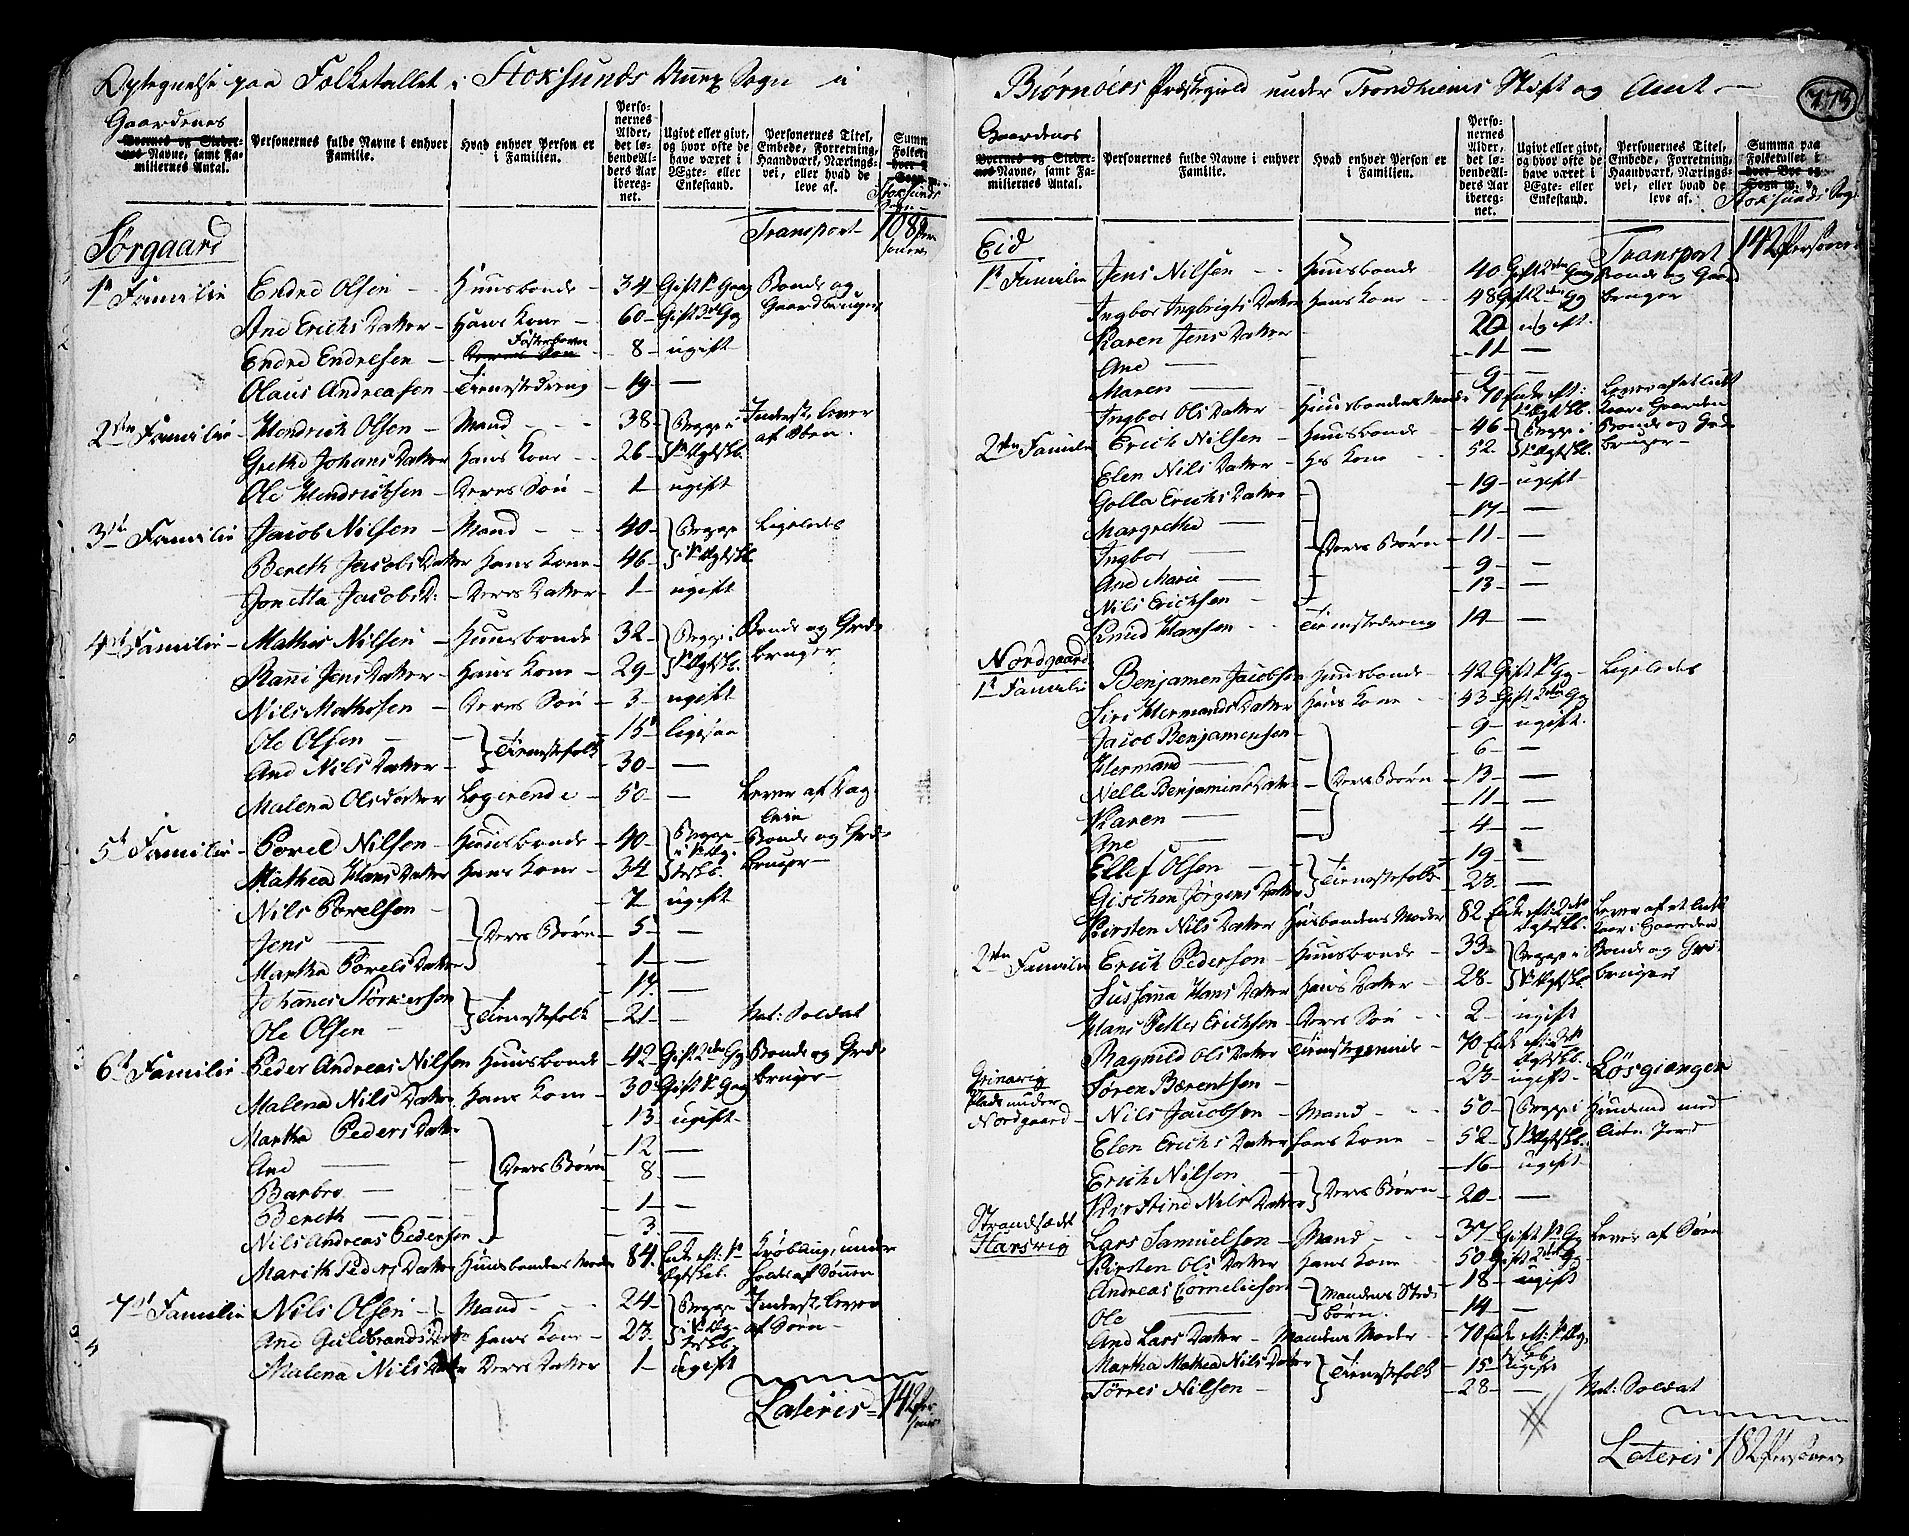 Optegnelse paa Folketallet i Stoksunds Annex Sogn i
Gaardenes
Boernes og Stedernes Navne, samt Familiernes Antal.
Personernes fulde Navne i enhver Familie.
Hvad enhver Person er i Familien.
Personernes Alder, det løbende Alders Aar iberegnet.
Ugivt eller givt, og hvor ofte de have været i Ægte- eller Enkestand.
Personernes Titel, Embede, Forretning, Haandværk, Næringsvei, eller hvad de leve af.
Stoksunds Sogn
Sørgaard
Transport 108 Personer
1ste Familie Endre Olsen - Huusbonde - 34 Gift 1ste Gang Bonde og
Ane Erichs Datter - Hans Kone - 60 Gift 3die Gg Gaardbruger
Endre Endresen - Deres Søn Fosterbørn - 8 - ugift
Olaus Andreasen - Tienestedreng - 19 -
2den Familie - Hendrich Olsen - Mand - 38 Begge i Inderst, lever
Grethe Johans Datter Hans Kone - 26 1ste Ægteskb. af Søen.
Ole Hendrichsen - Deres Søn - 1 - ugift
3die Familie Jacob Nilsen - Mand - 40 Begge Ligeledes
Bereth Jacobs Datter Hans Kone - 46 i 1ste Ægteskb.
Jonetta Jacobs D: - Deres Datter - 1 - ugift
4de Familie - Mathis Nilsen - Huusbonde - 32 Begge i Bonde og Grd-
Ranni Jens Datter - Hans Kone - 29 1ste Ægteskb. bruger
Nils Mathisen - Deres Søn - 3 - ugift
Ole Olsen - 15 ligesaa
Tienestefolk
Ane Nils Datter - 30 -
Malena Olsdatter Logerende - 50 - Lever af Dag-
leie
5te Familie - Povel Nilsen - Huusbonde - 40 Begge Bonde og Grd-
Mathea Hans Datter Hans Kone - 34 i 1ste Ægteskb. bruger
Nils Povelsen - 7 - ugift
Jens - Deres Børn - 5 -
Martha Povels Datter 1 -
Johannes Størkersen 17 -
Tienestefolk
Ole Olsen - 21 - Nat: Soldat
6te Familie - Peder Andreas Nilsen Huusbonde - 42 Gift 2den Gg Bonde og Grd-
Malena Nils Datter Hans Kone - 30 Gift 1ste Gang bruger
Martha Peders Datter 13 - ugift
Ane - Deres Børn 12 -
Barbro - 8 -
Bereth - 1 -
Nils Andreas Pedersen 3 -
Marith Peders Datter Huusbondens Moder 84. Enke eft: 1ste under
Ægteskab. holds af Sønnen
7de Familie Nils Olsen - Mand - 24 Begge Inderst, lever
Ane Guldbrands Datter Hans Kone - 23 i 1ste Ægteskb. af Søen
Malena Nils Datter Deres Datter 1 - ugift
Lateris = 142 Personer
Biørnøers Præstegield under Trondhiems Stift og Amt
773
Gaardenes
Boernes og Stedernes Navne, samt Familiernes Antal.
Personernes fulde Navne i enhver Familie.
Hvad enhver Person er i Familien.
Personernes Alder, det løbende Alders Aar iberegnet.
Ugivt eller givt, og hvor ofte de have været i Ægte- eller Enkestand.
Personernes Titel, Embede, Forretning, Haandværk, Næringsvei, eller hvad de leve af.
Summa paa Folketallet i hver Boe og Sogn
Stoksunds Sogn
Eid
Transport 142 Personer
1ste Familie Jens Nilsen - Huusbonde - 40 Gift 2den Gang Bonde og Gaard-
Ingbor Ingbrigts Datter Hans Kone - 48 Gift 2den Gg bruger
Karen Jens Datter 20 ugift.
Ane - 11 -
Maren - 9 -
Ingbor Ols Datter - Huusbondens Moder 70 Enke eft: 1ste Ægteskb. Lever af et lidet Kaar i Gaarden
2den Familie Erich Nilsen - Huusbonde - 46 Begge i Bonde og Grd-
Elen Nils Datter - Hs Kone - 52 1ste Ægteskb. bruger
Golla Erichs Datter 19 - ugift
Margrethe - 17 -
Ingbor - Deres Børn - 11 -
Ane Marie - 9 -
Nils Erichsen - 13 -
Knud Hansen - Tienstedreng 14 -
Nordgaard
1ste Familie Benjamen Jacobsen Huusbonde - 42 Gift 1ste Gg - Ligeledes
Siri Hermands Datter Hans Kone - 43 Gift 2den Gg
Jacob Benjamensen 9 - ugift.
Hermand - 6 -
Nelle Benjamins Datter Deres Børn - 13 -
Karen - 11 -
Ane - 4 -
Ellef Olsen - 19 -
Tienestefolk
Gischen Jørgens Datter 23 -
Kirsten Nils Datter Husbondens Moder 82 Enke eft: 2det Ægteskb. Lever af et lidet Kaar i Gaarden
2den Familie Erich Pedersen - Huusbonde - 33 Begge i Bonde og Grd-
Sussanna Hans Datter Hans Datter - 28 1ste Ægteskb. bruger
Hans Petter Erichsen - Deres Søn - 2 - ugift
Ragnild Ols Datter Tienstepenide - 70 Enke eft: 2det Ægteskb.
Grinavig
Plads under
Nordgaard
Søren Bærentsen - 23 ugift - Løsgiænger
Nils Jacobsen - Mand - 50 Begge i Huusmand med
Elen Erichs Datter Hans Kone - 52 1ste Ægteskb. liden Jord
Erich Nilsen - 16 - ugift
Deres Børn
Kirstine Nils Datter 20 -
Strandsædet
Harsvig
Lars Samuelsen - Mand - 37 Gift 1ste Gg Lever af Søen
Kirsten Ols Datter Hans Kone - 50 Gift 2den Gg -
Andreas Corneliesen 18 - ugift
Mandens Sted-
børn.
Ole - 14 -
Ane Lars Datter - Mandens Moder - 70 Enke eft: 1ste Ægteskb
Martha Mathea Nils Datter 15 ugift
Tienestefolk
Tørres Nilsen - 28 - Nat: Soldat
Lateris 182 Personer